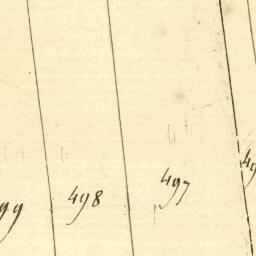 99 498 497 49